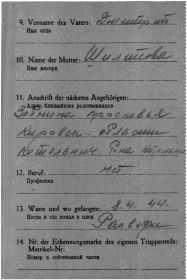 9. Vorname des Vaters: Дмитрий
Имя отца
10. Name der Mutter: Шилятова
Имя матери
11. Anschrift der nächsten Angehörigen:
Адрес ближайших родственников
Зобнина Просковья
Кировск. области
Котельнич. р-на
12. Beruf: нет
Профессия
13 Wann und wo gefangen: 8. 4. 44.
Когда и где попал в плен
14. Nr. der Erkennungsmarke des eigenen Truppenteils:
Matrikel-Nr.
Номер в собственной части